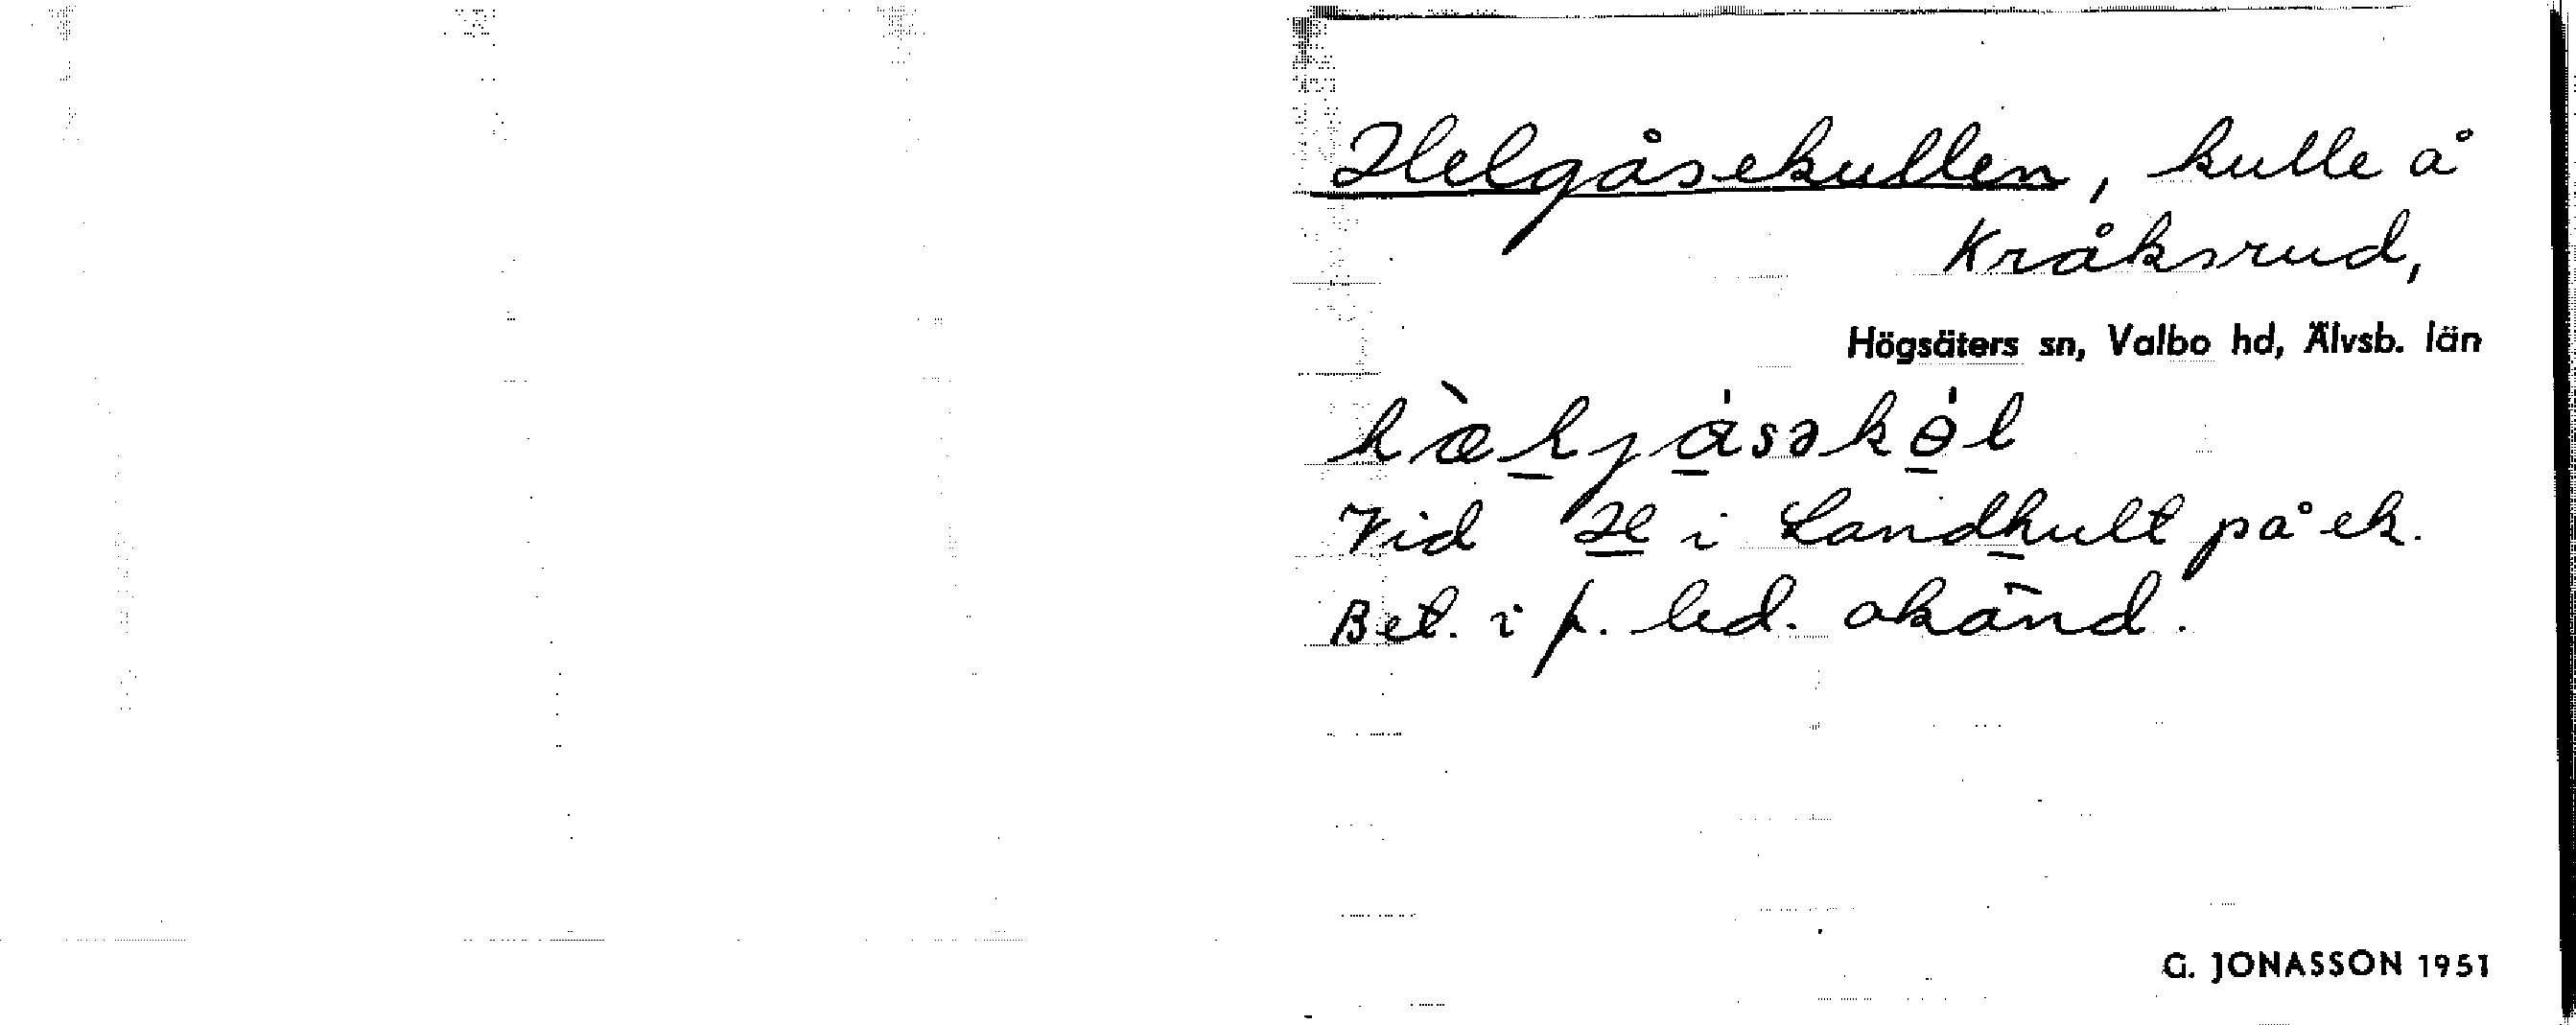 Helgåsekullen, kulle å
Kråksrud,
Högsäters sn, Valbo hd, Älvsb. län
Vid H i Landhult på ek.
Bet. i f. led. okänd.
G. JONASSON 1951